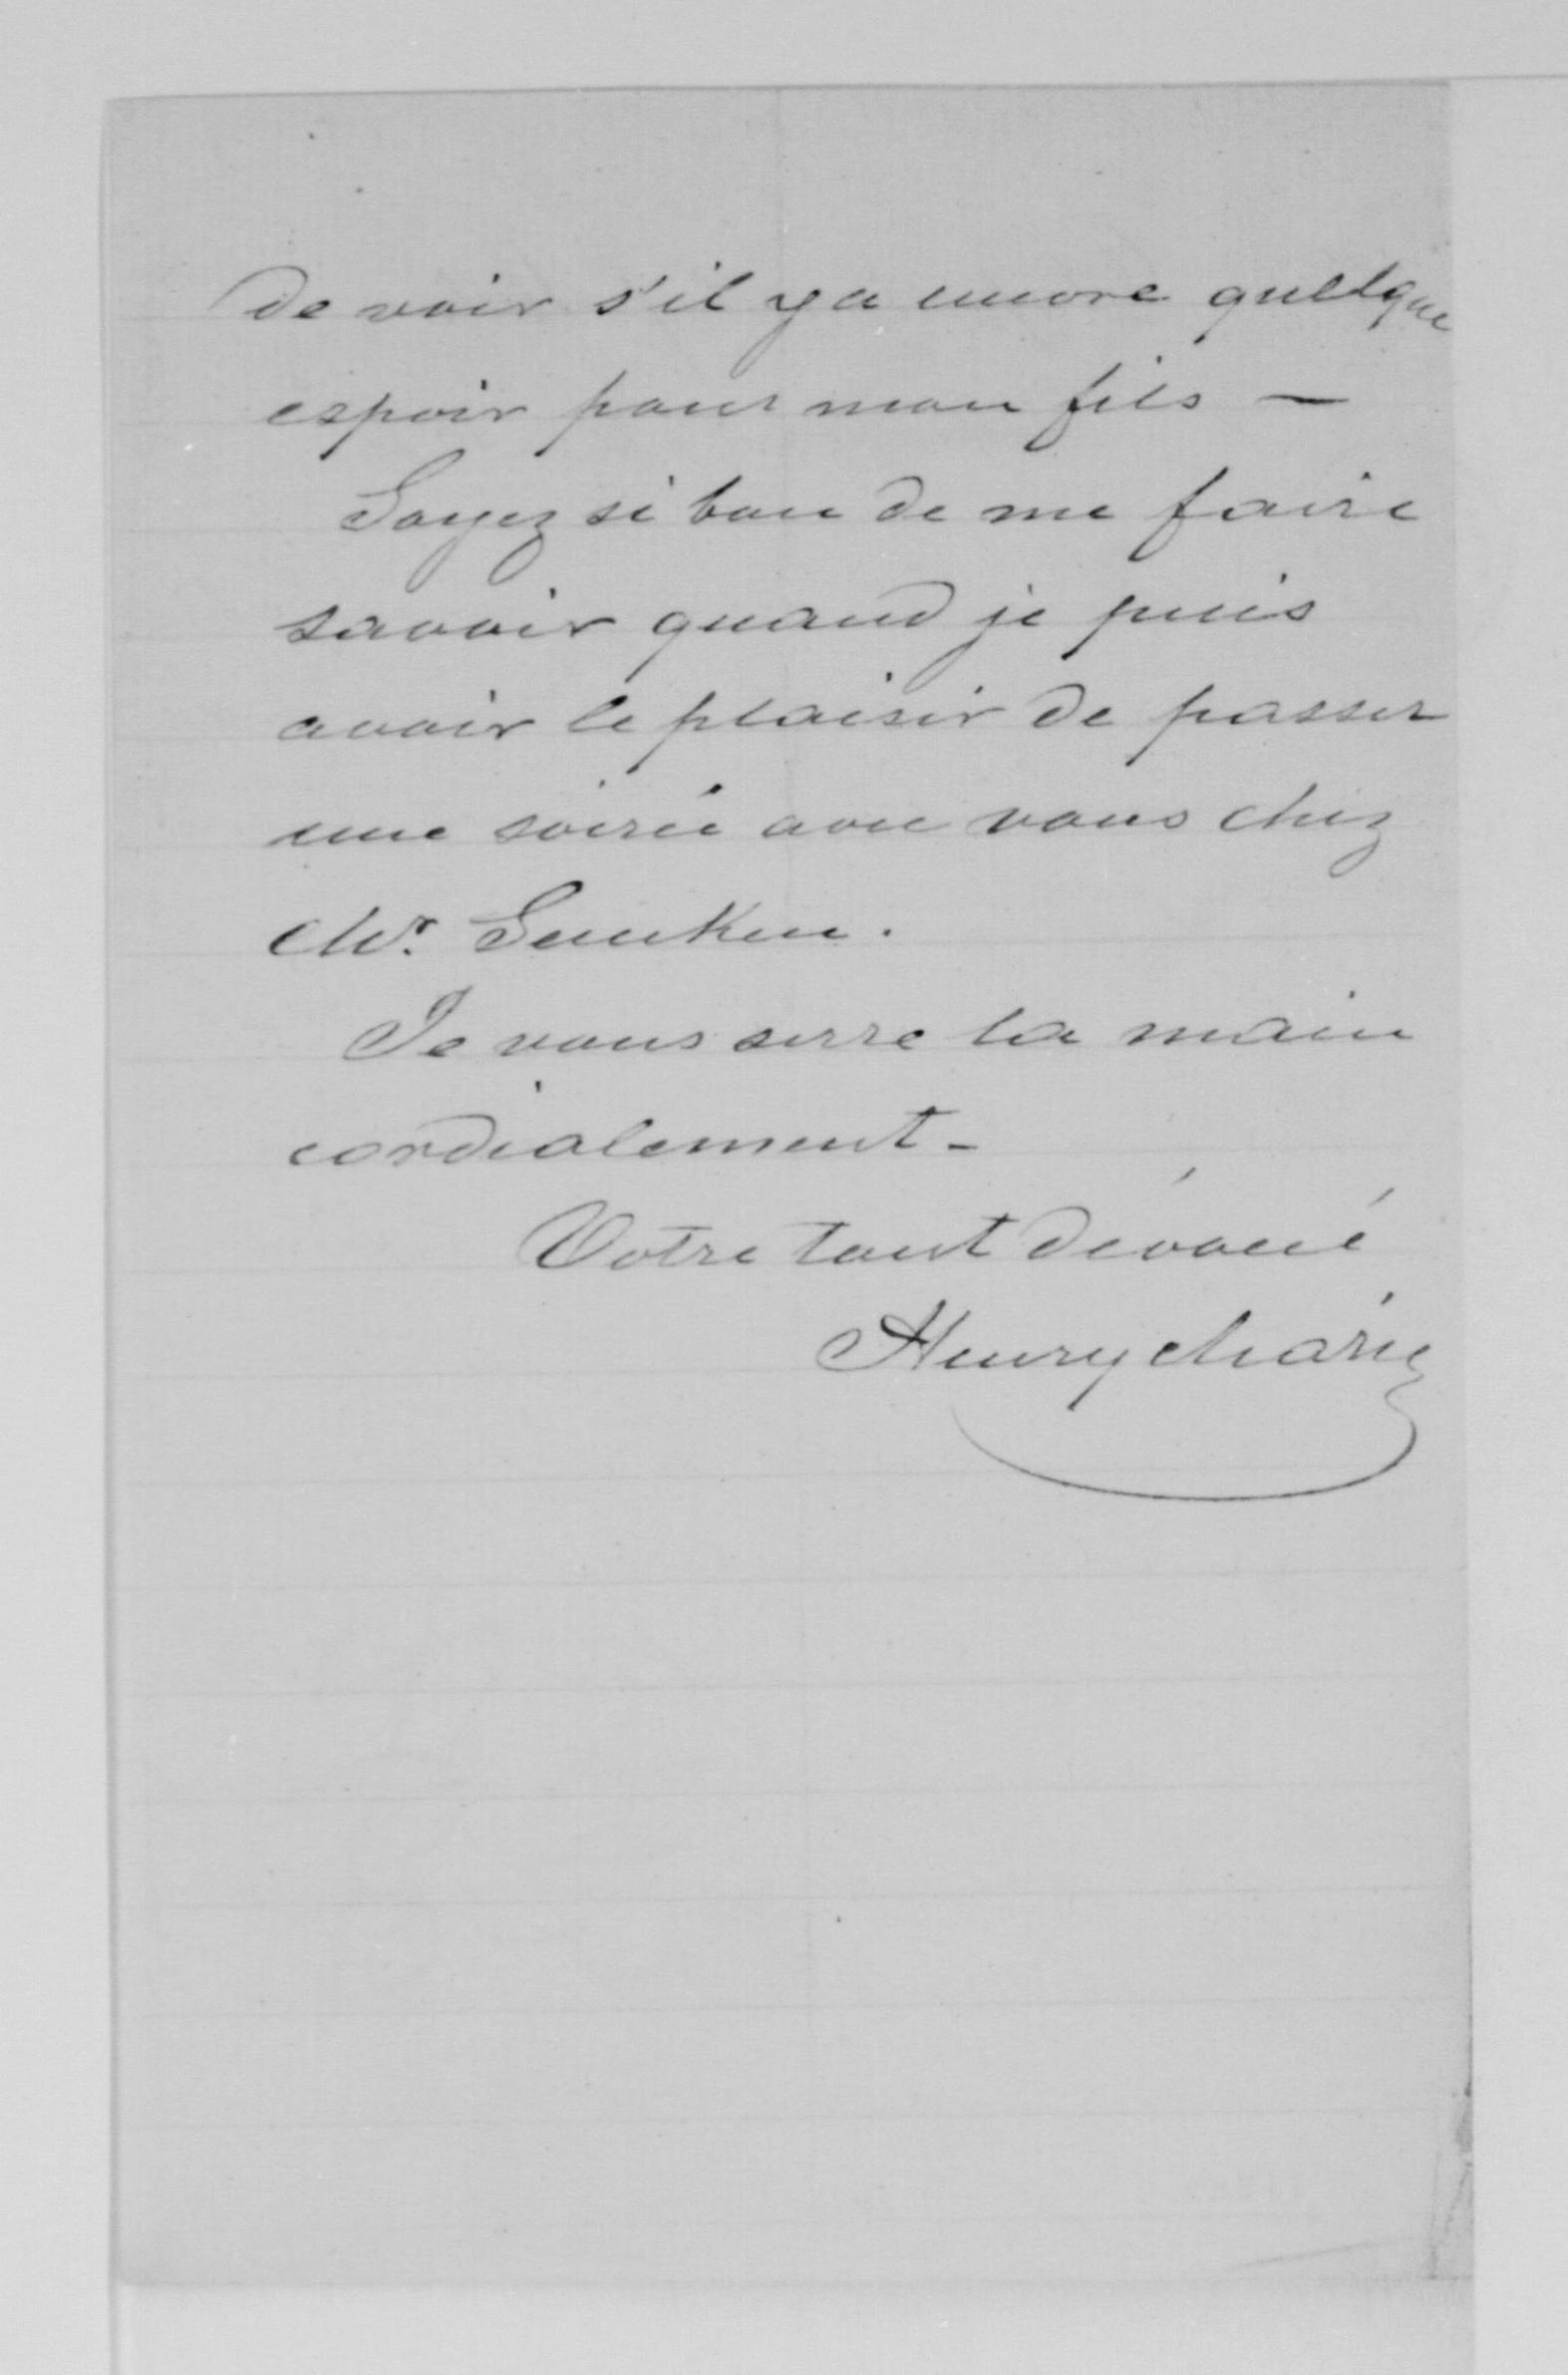 de voir s'il y a encore quelque
espoir pour mon fils —
Soyez si bon de me faire
savoir quand je puis
avoir le plaisir de passer
une soirée avec vous chez
Mr.
Je vous serre la main
cordialement -
Votre tout dévoué
Henry